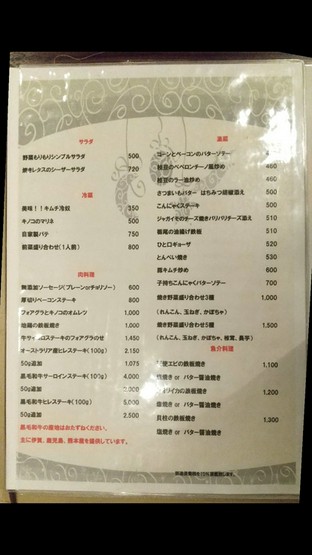 サラダ
野菜もりもりシンプルサラダ 500
焼きレタスのシーザーサラダ 720
冷菜
美味！！キムチ冷奴 350
キノコのマリネ 500
自家製パテ 750
前菜盛り合わせ(1人前) 800
肉料理
無添加ソーセージ(プレーンorチョリソー) 600
厚切りベーコンステーキ 800
フォアグラとキノコのオムレツ 1,000
地鶏の鉄板焼き 1,000
牛サイコロステーキのフォアグラのせ 1,450
オーストラリア産ヒレステーキ(100g) 2,150
50g追加 1,075
黒毛和牛サーロインステーキ(100g) 4,000
50g追加 2,000
黒毛和牛ヒレステーキ(100g) 5,000
50g追加 2,500
黒毛和牛の産地はおたずねください。
主に伊賀、鹿児島、熊本産を提供しています。
温菜
コーンとベーコンのバターソテー
枝豆のペペロンチーノ風炒め 460
枝豆のラー油炒め 460
さつまいもバター はちみつ胡椒添え 500
こんにゃくステーキ 500
ジャガイモのチーズ焼きパリパリチーズ添え 510
栃尾の油揚げ鉄板 510
ひと口ギョーザ 520
とんぺい焼き 530
豚キムチ炒め 600
子持ちこんにゃくバターソテー 700
焼き野菜盛り合わせ3種 1,000
(れんこん、玉ねぎ、かぼちゃ)
焼き野菜盛り合わせ5種 1,500
(れんこん、玉ねぎ、かぼちゃ、椎茸、長芋)
魚介料理
エビの鉄板焼き 1,100
塩焼き or バター醤油焼き
イカの鉄板焼き 1,200
塩焼き or バター醤油焼き
貝柱の鉄板焼き 1,300
塩焼き or バター醤油焼き